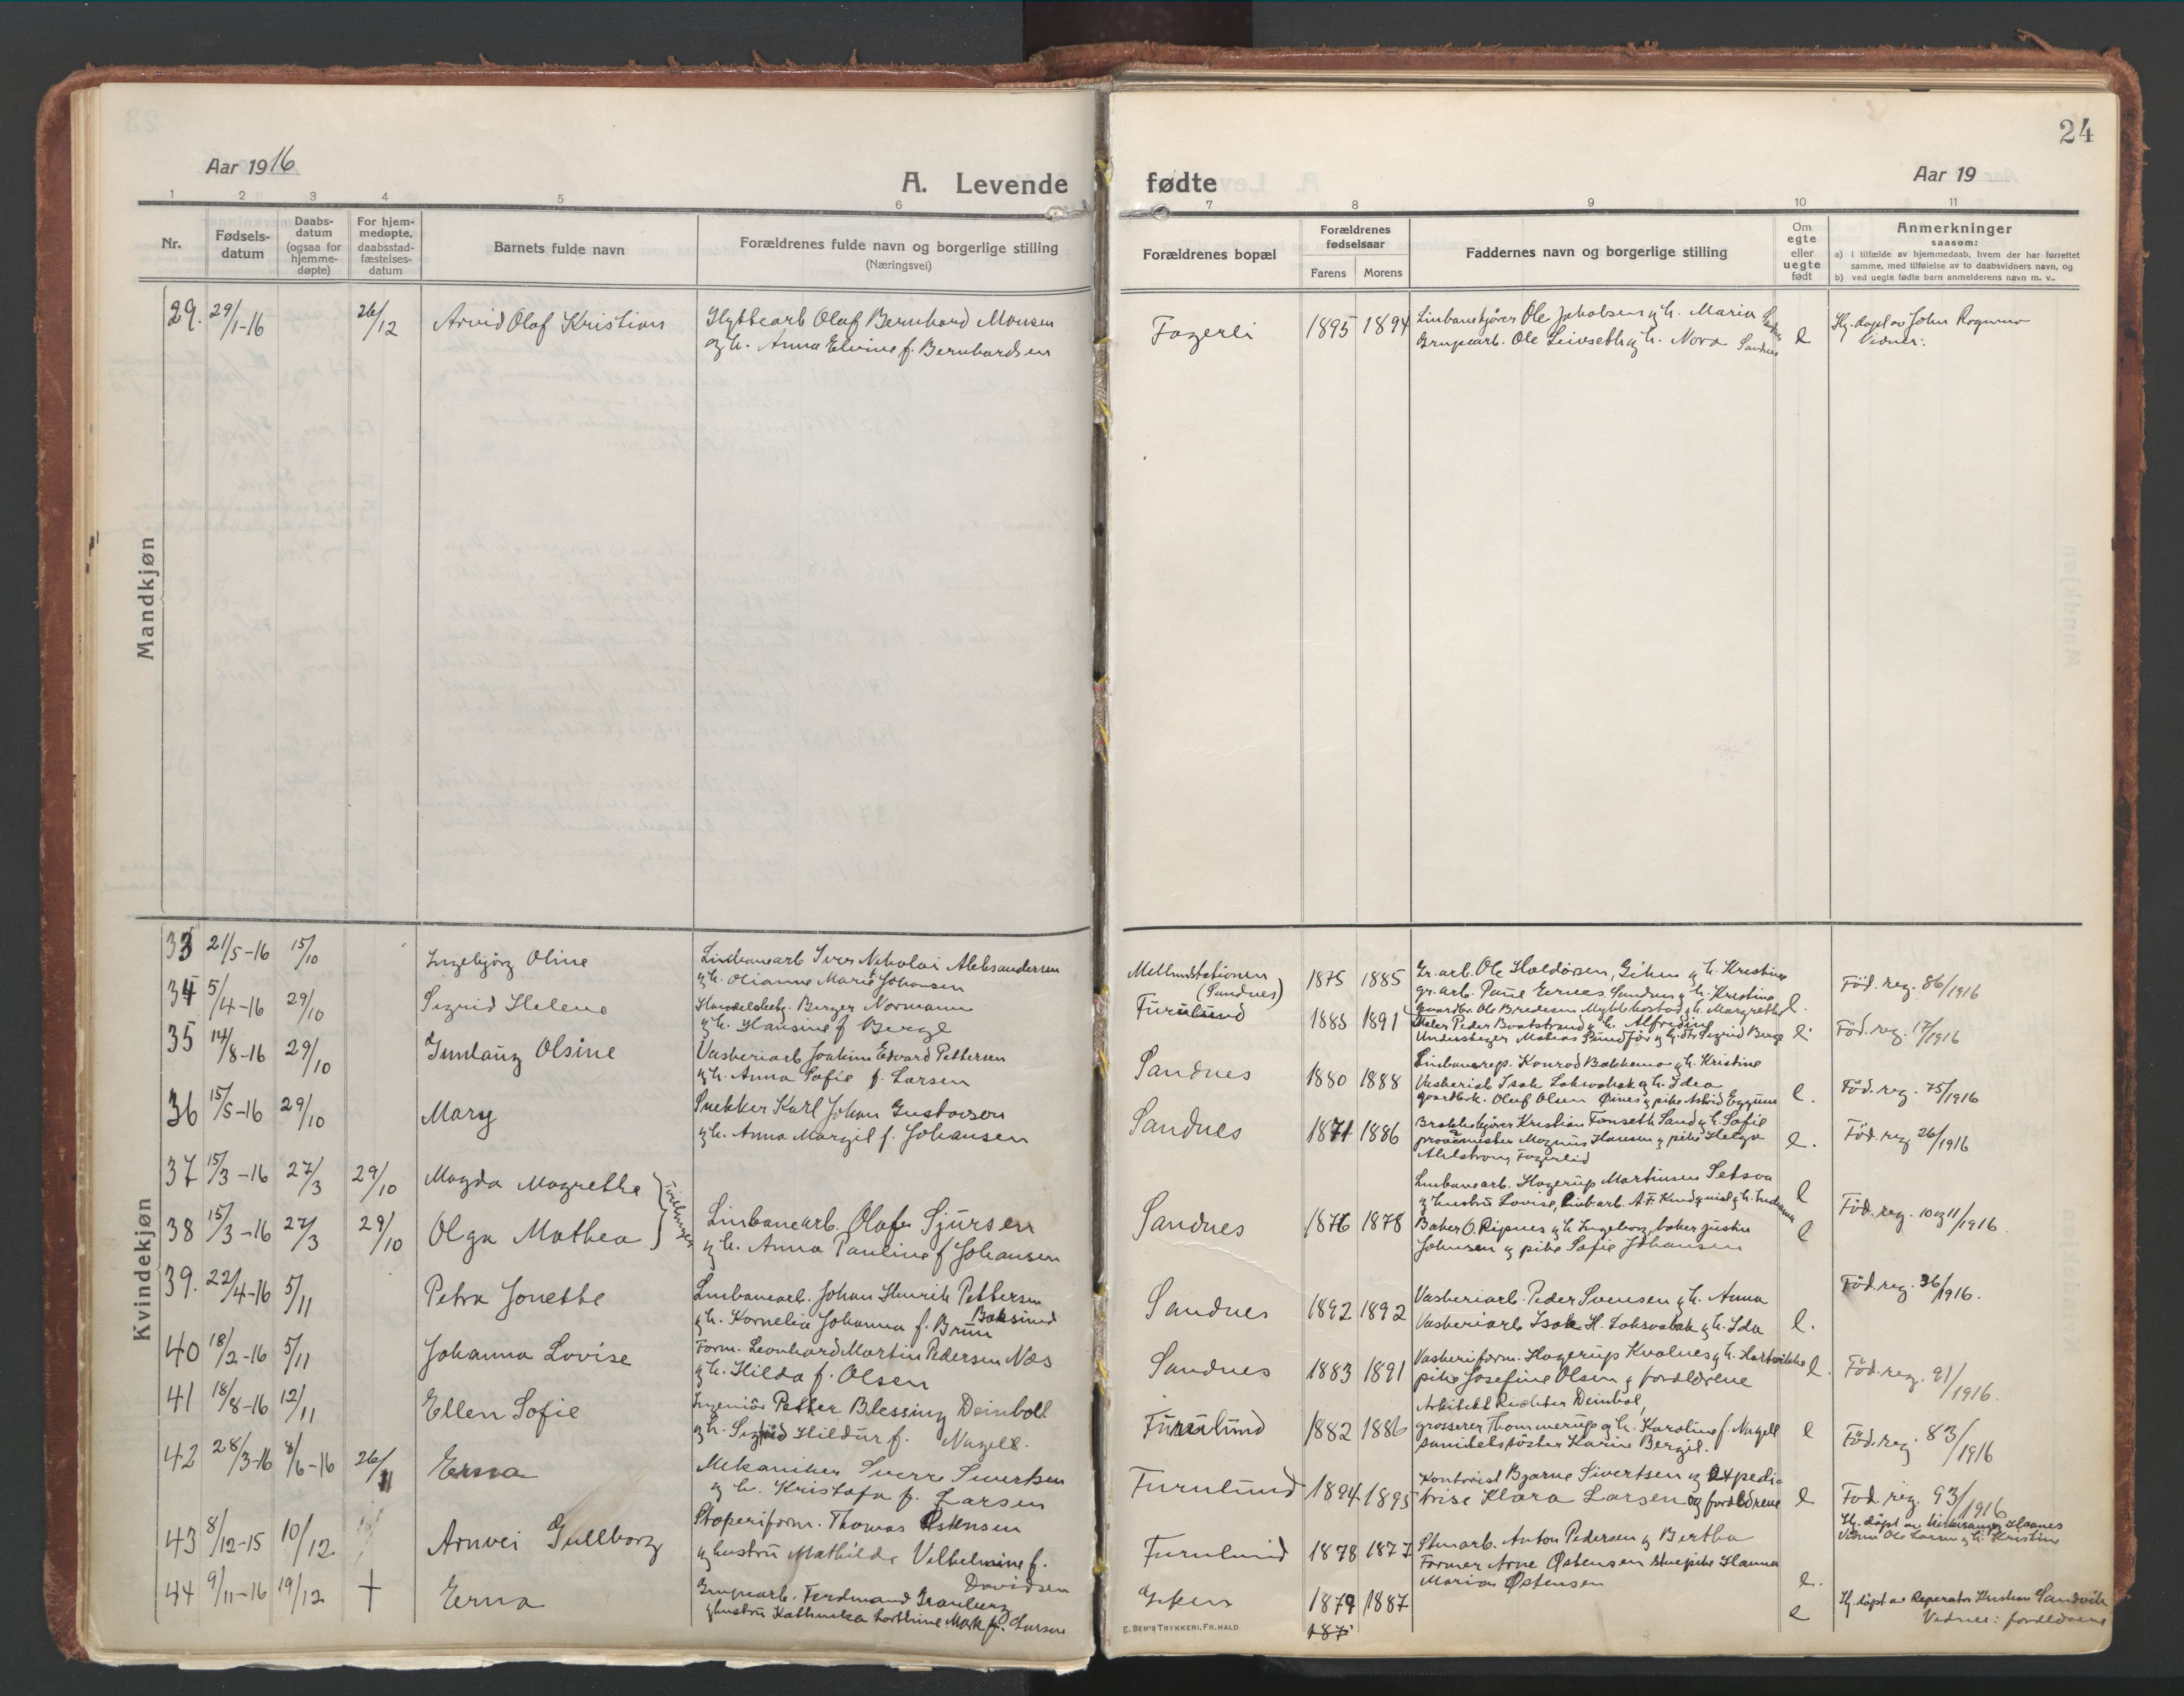 24
Aar 1916
A. Levende fødte
Aar 19
1 2 3 4 5 6 7 8 9 10 11
Nr.
Fødsels-
datum
Daabs-
datum
(ogsaa for
hjemme-
døpte)
For hjem-
medøpte,
daabsstad-
fæstelses-
datum
Barnets fulde navn
Forældrenes fulde navn og borgerlige stilling
(Næringsvei)
Forældrenes bopæl
Forældrenes
fødselsaar
Farens Morens
Faddernes navn og borgerlige stilling
Om
egte
eller
uegte
født
Anmerkninger
saasom:
a) i tilfælde av hjemmedaab, hvem der har forrettet
samme, med tilføielse av to daabsvidners navn, og
b) ved uegte fødte barn anmelderens navn m. v..
Mandkjøn
29. 29/1-16 26/12 Arvid Olaf Kristian
Olaf Bernhard Monsen
og h. Anna Elvine f. Bernhardsen
Fagerli 1895 1894
Linbanekjører Ole Jakobsen og h. Maria
Grupearb. Ole Leivseth og h. Nora Sandnes
e
Hj. døpt av John Rognmo
Vidner:
Kvindekjøn
33 21/5-16 15/10 Ingebjørg Oline
Linbanearb. Iver Nikolai Aleksandersen
og h. Olianne Marie Johansen
Mellemstationen
(Sandnes)
1875 1885
Gr. arb. Ole Haldorsen, og h. Kristine
gr. arb. Sandnes og h. Kristine
e.
Föd. reg. 86/1916
34 5/4-16 29/10 Sigrid Helene
Handelsbetj. Birger Normann
og h. Hansine f. Berge
Furulund 1885 1891
Gaardbr. Ole Bredesen og h. Margrethe
Maler Peder og h. Alfredine
e
Föd. reg. 17/1916
35 14/8-16 29/10 Gunlaug Olsine
Vaskeriarb. Joakim Edvard Pettersen
og h. Anna Sofie f. Larsen
Sandnes 1880 1888
Linbanerep. Konrad Bakkemo og h. Kristine
Vaskeriarb. Isak og h. Idea
gaardbr. Oluf Olsen og pike Astrid Eggum
e.
Föd. reg. 75/1916
36 15/5-16 29/10 Mary
Snekker Karl Johan Gustavson
og h. Anna Margit f. Johansen
Sandnes 1871 1886
Kristian Fonseth Sand og h. Sofie
Magnus Hansen og pike Helga
e.
Föd. reg. 26/1916
37 15/3-16 27/3 29/10 Magda Magrethe
38 15/3-16 27/3 29/10 Olga Mathea
Tvillinger
Linbanearb. Olaf Sjursen
og h. Anna Pauline f. Johansen
Sandnes 1876 1878
Linbanearb. Hagerup Martinsen Setsaa
og hustru Lovise,
Baker O. Ripnes og h. Ingeborg, baker Justin
Johnsen og pike Sofie Johansen
e
e
Föd. reg. 10 og 11/1916.
39. 22/4-16 5/11 Petra Jonette
Linbanearb. Johan Henrik Pettersen
Baksund
og h. Kornelia Johanna f. Brun
Sandnes 1892 1892
Vaskeriarb. Peder Svensen og h. Anna
Vaskeriarb. Isak H. og h. Ida
e.
Föd. reg. 36/1916.
40 18/2-16 5/11 Johanna Lovise
Form. Leonhard Martin Pedersen Næs
og h. Hilda f. Olsen
Sandnes 1883 1891
Vaskeriform. Hagerup Kvalnes og h.
pike Josefine Olsen og forældrene
e.
Föd. reg. 91/1916.
41 18/8-16 12/11 Ellen Sofie
Ingeniör Petter Blessing Deinboll
og h. Sigrid Hildur f. Nagell.
Furulund 1882 1886
Arkitekt Richter Deinbol,
grosserer Thommerup og h. Karoline f. Nagell
Karin Bergit.
e
Föd. reg. 83/1916
42 28/3-16 8/6-16 26/11 Erna
Mekaniker Sverre Sivertsen
og h. Kristofa f. Larsen
Furulund 1894 1895
Kontorist Bjarne Sivertsen og Expedi-
trise Klara Larsen og forældrene
e
Föd. reg. 93/1916
Hj. döpt av Haanes
Vidner Ole Larsen og h. Kristine
43 8/12-15 10/12 Arnvei Gullborg
Stoperiform. Thomas Østensen
og hustru Mathilde Vilhelmine f.
Davidsen
Furulund 1878 1877
Anton Pedersen og Bertha
Former Arne Østensen stuepike Hanna
Marian Østensen
e.
44 9/11-16 19/12 † Erna
Grupearb. Ferdinand
og hustru Kathinka f. Larsen
1879 1887
187
e
Hj. døpt av Reparatør Kristian Sandvik
Vidner: forældrene
E. SEM'S TRYKKERI, FR. HALD